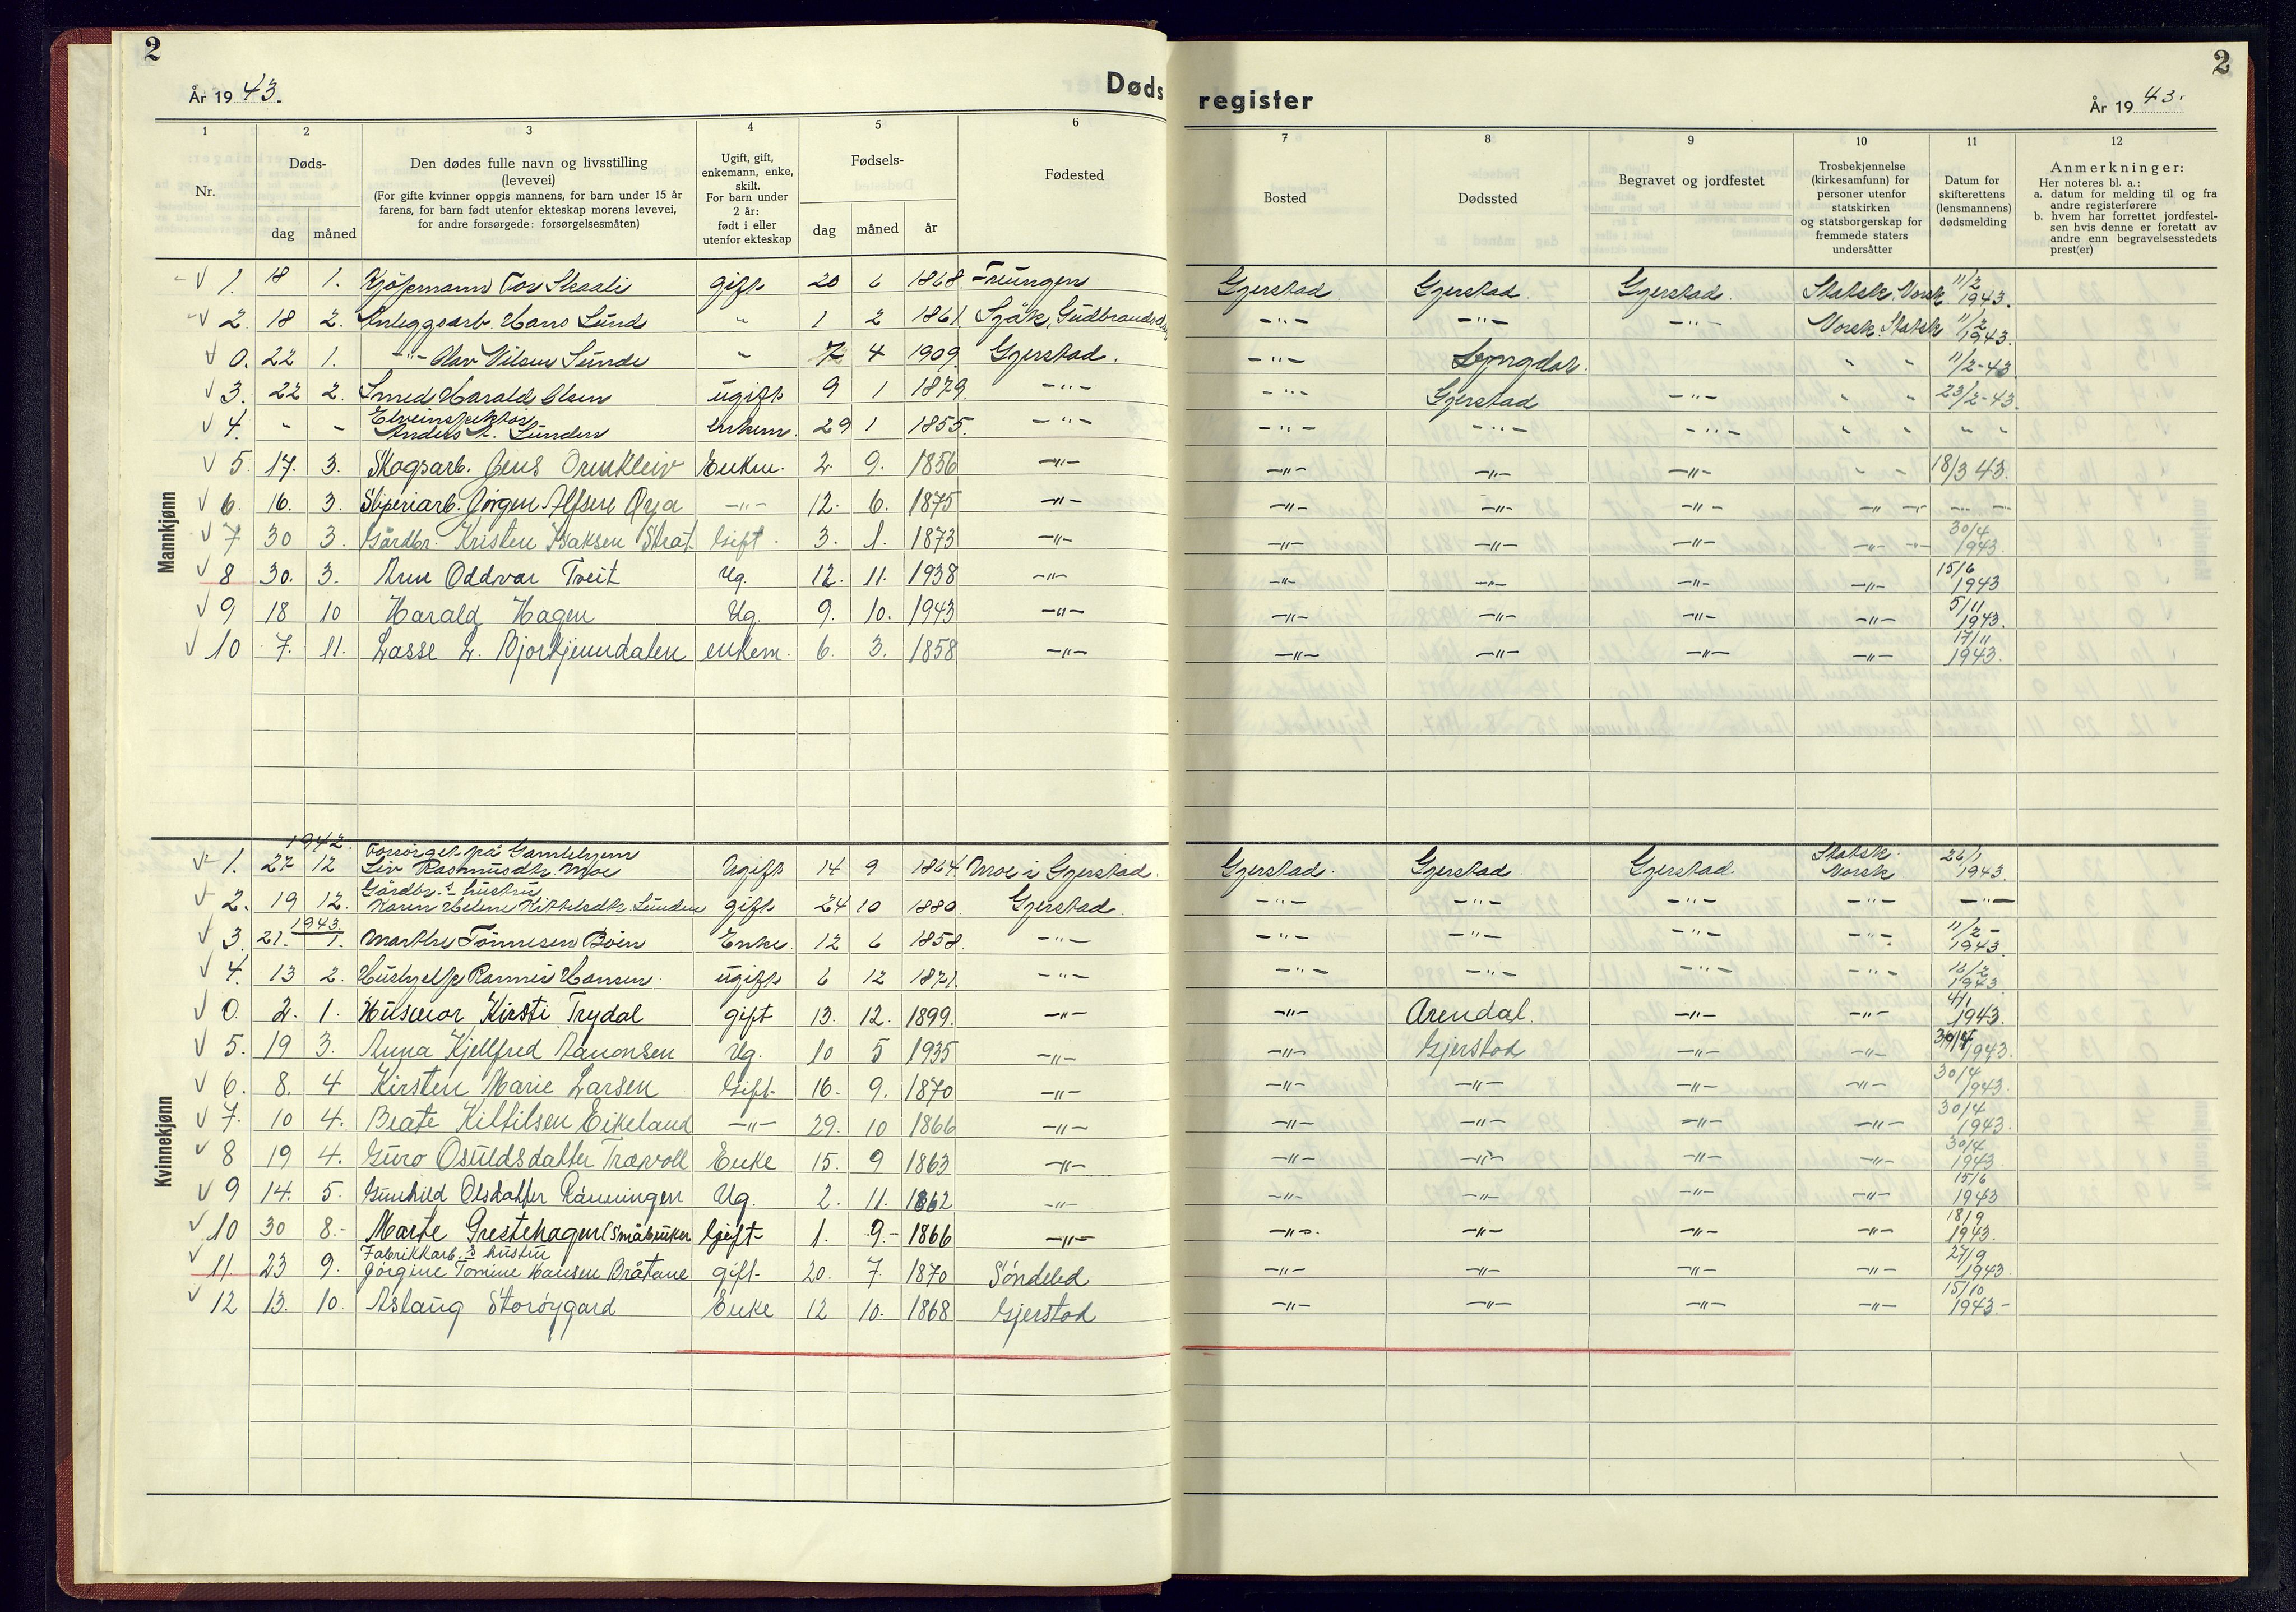 2
År 1943.
Døds
1 2 3 4 5 6
Nr.
Døds-
dag måned
Den dødes fulle navn og livsstilling
(levevei)
(For gifte kvinner oppgis mannens, for barn under 15 år
farens, for barn født utenfor ekteskap morens levevei,
for andre forsørgede: forsørgelsesmåten)
Ugift, gift,
enkemann, enke,
skilt.
For barn under
2 år:
født i eller
utenfor ekteskap
Fødsels-
dag måned år
Fødested
Mannkjønn
√ 1. 18 1. Kjøpmann Tov gift 20 6 1868. Treungen
√ 2. 18 2. Anleggsarb. Hans Lunde " 1 2 1861 Sjåk, Gudbrandsdal
√ 0. 22 1. -"- Olav Nilsen Lunde " 7 4 1909 Gjerstad.
√ 3. 22 2. Smed Harald Olsen ugift 9 1 1879. -"-
√ 4. " " Elveinspektør
Anders A. Lunden enkem. 29 1 1855. -"-
√ 5. 17. 3. Skogsarb. Jens Ormkleiv Enkm. 2. 9. 1856 -"-
√ 6. 16. 3. Sliperiarb. Jørgen Alfsen Øyja -"- 12. 6. 1875 -"-
√ 7 30 3. Gårdbr. Kristen Isaksen Strat. Gift. 3. 1. 1873 -"-
√ 8 30. 3. Arne Oddvar Tveit Ug. 12. 11. 1938 -"-
√ 9 18 10 Harald Hagen Ug. 9. 10. 1943 -"-
√ 10 7. 11. Lasse L. Bjorkjenndalen enkem. 6. 3. 1858 -"-
Kvinnekjønn
1942.
√ 1. 27 12 Forsørget på Gamlehjem
Liv Rasmusdtr. Moe Ugift 14 9 1864 Moe i Gjerstad.
√ 2. 19 12. Gårdbr.s hustru
Karen Helene Kittelsdtr. Lunden gift 24 10 1880. Gjerstad.
1943.
√ 3. 21. 1. Marthe Tønnesen Bøen Enke. 12 6 1858. -"-
√ 4. 13 2. Hushjelp Hansen. ugift 6 12 1871. -"-
√ 0. 2. 1. Husmor Kirsti Trydal gift 13. 12. 1899. -"-
√ 5. 19 3. Anna Kjellfred Aanonsen Ug. 10 5 1935 -"-
√ 6. 8. 4 Kirsten Marie Larsen Gift- 16. 9. 1870 -"-
√ 7. 10 4. Beate Kittilsen Eikeland -"- 29. 10 1866 -"-
√ 8 19 4. Guro Osuldsdatter Trævoll Enke 15. 9 1863 -"-
√ 9 14. 5. Gunhild Olsdatter Rønningen Ug. 2. 11. 1862 -"-
√ 10 30 8.- Marte Grestehagen (småbruker Gift- 1. 9.- 1866 -"-
√ 11 23 9. Fabrikkarb.s hustru
Jørgine Tomine Hansen Bråtane gift- 20. 7. 1870 Søndeled
√ 12 13. 10. Aslaug Storøygard Enke 12 10. 1868 Gjerstad
2
register
År 1943.
7 8 9 10 11 12
Bosted
Dødssted
Begravet og jordfestet
Trosbekjennelse
(kirkesamfunn) for
personer utenfor
statskirken
og statsborgerskap for
fremmede staters
undersåtter
Datum for
skifterettens
(lensmannens)
dødsmelding
Anmerkninger:
Her noteres bl. a.:
a. datum for melding til og fra
andre registerførere
b. hvem har forrettet jordfestel-
sen hvis denne er foretatt av
andre enn begravelsesstedets
prest(er)
Gjerstad. Gjerstad Gjerstad. Statsk. Norsk 11/2 1943.
-"- -"- -"- Norsk. Statsk 11/2 1943.
-"- Lyngdal. " " 11/2-43
-"- Gjerstad -"- " " 23/2-43.
-"- -"- -"- " " " "
-"- -"- -"- " - 18/3 43.
-"- -"- -"- -"- -"- -"-
-"- -"- -"- -"- -"- 30/4 1943.
-"- -"- -"- -"- 15/6 1943
-"- -"- -"- -"- 5/11 1943.
-"- -"- -"- -"- 17/11 1943.
Gjerstad. Gjerstad Gjerstad. Statsk. Norsk 26/1 1943.
-"- -"- -"- -"- -"-
-"- -"- -"- -"- 11/2- 1943.
-"- -"- -"- -"- 1943
-"- Arendal. -"- -"- 4/1 1943.
-"- Gjerstad -"- -"- 30/4 1943.
-"- -"- -"- -"- 30/4 1943.
-"- -"- -"- -"- 30/4 1943.
-"- -"- -"- -"- 30/4 1943
-"- -"- -"- -"- 15/6 1943
-"-. -"- -"- -"- 18/9 1943.
-"- -"- -"- -"- 27/9 1943.
-"- -"- -"- -"- 15/10 1943.-